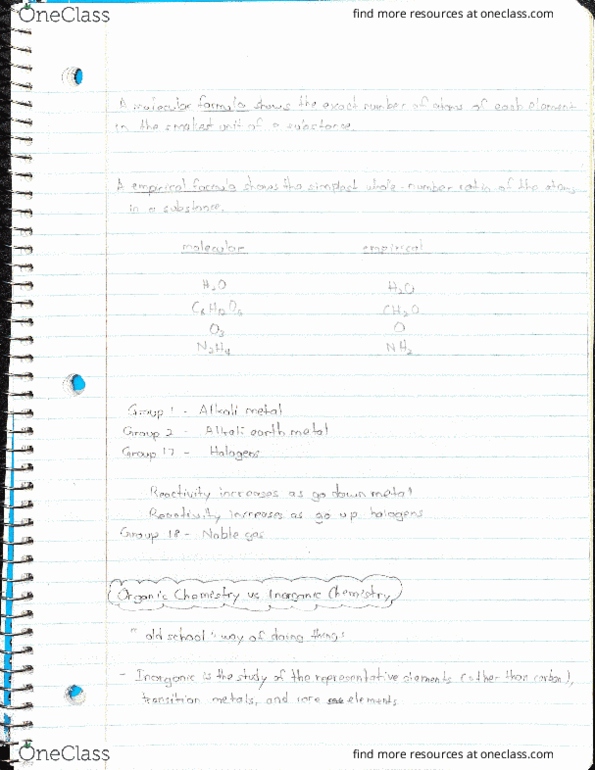 OneClass
find more resources at oneclass.com
A molecular formula shows the exact number of atoms of each element
in the smallest unit of a substance.
A empirical formula shows the simplest whole-number ratio of the atoms
in a substance.
molecular empirical
H₂O H₂O
C₆H₁₂O₆ CH₂O
O₃ O
N₂H₄ NH₂
Group 1 - Alkali metal
Group 2 - Alkali earth metal
Group 17 - Halogens
Reactivity increases as go down metal
Reactivity increases as go up halogens
Group 18 - Noble gas
Organic Chemistry vs Inorganic Chemistry
"old school" way of doing things
- Inorganic is the study of the representative elements (other than carbon),
transition metals, and rare elements
OneClass
find more resources at oneclass.com